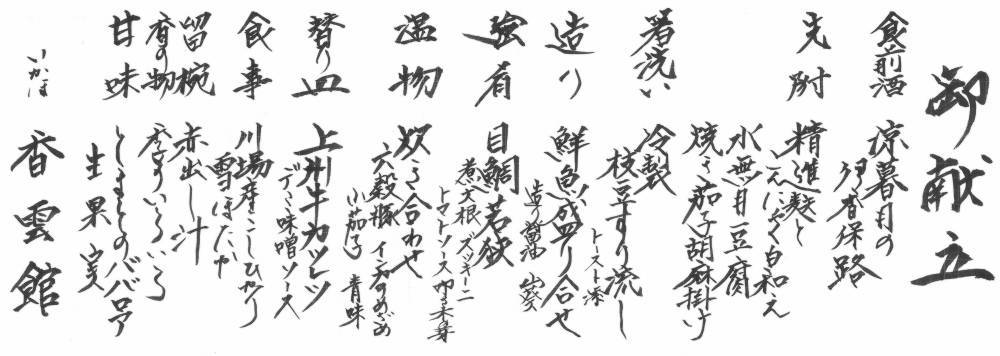 御献立
食前酒
涼暮月の
伊香保路
先附
精進麩と
こんにゃく白和え
水無月豆腐
焼き茄子胡麻掛け
箸洗い
冷製
枝豆すり流し
トースト添
造り
鮮魚盛り合せ
造り醤油 山葵
強肴
目鯛若狭
煮大根 ズッキーニ
トマトソース
温物
炊き合わせ
六穀豚
小茄子 青味
替り皿
上州牛カツレツ
味噌ソース
食事
川場産こしひかり
雪ほたか
留椀
赤出し汁
香の物
いろいろ
甘味
とまとのババロア
生果実
いかほ
香雲館